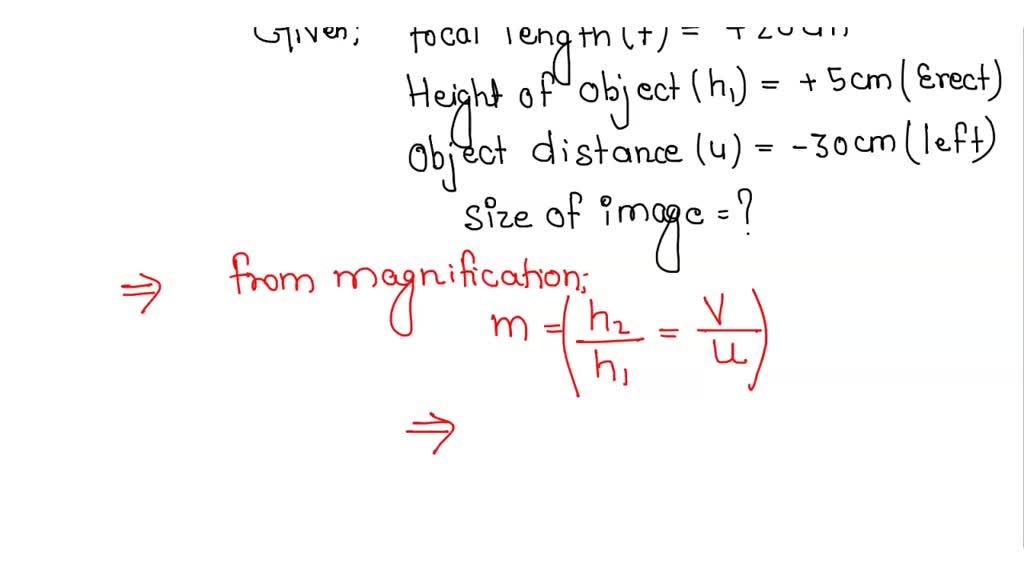 Given; focal length (f) = +20cm
Height of object (h₁) = +5cm (Erect)
Object distance (u) = -30cm (left)
size of image = ?
⇒ from magnification;
m = (h₂/h₁ = V/u)
⇒